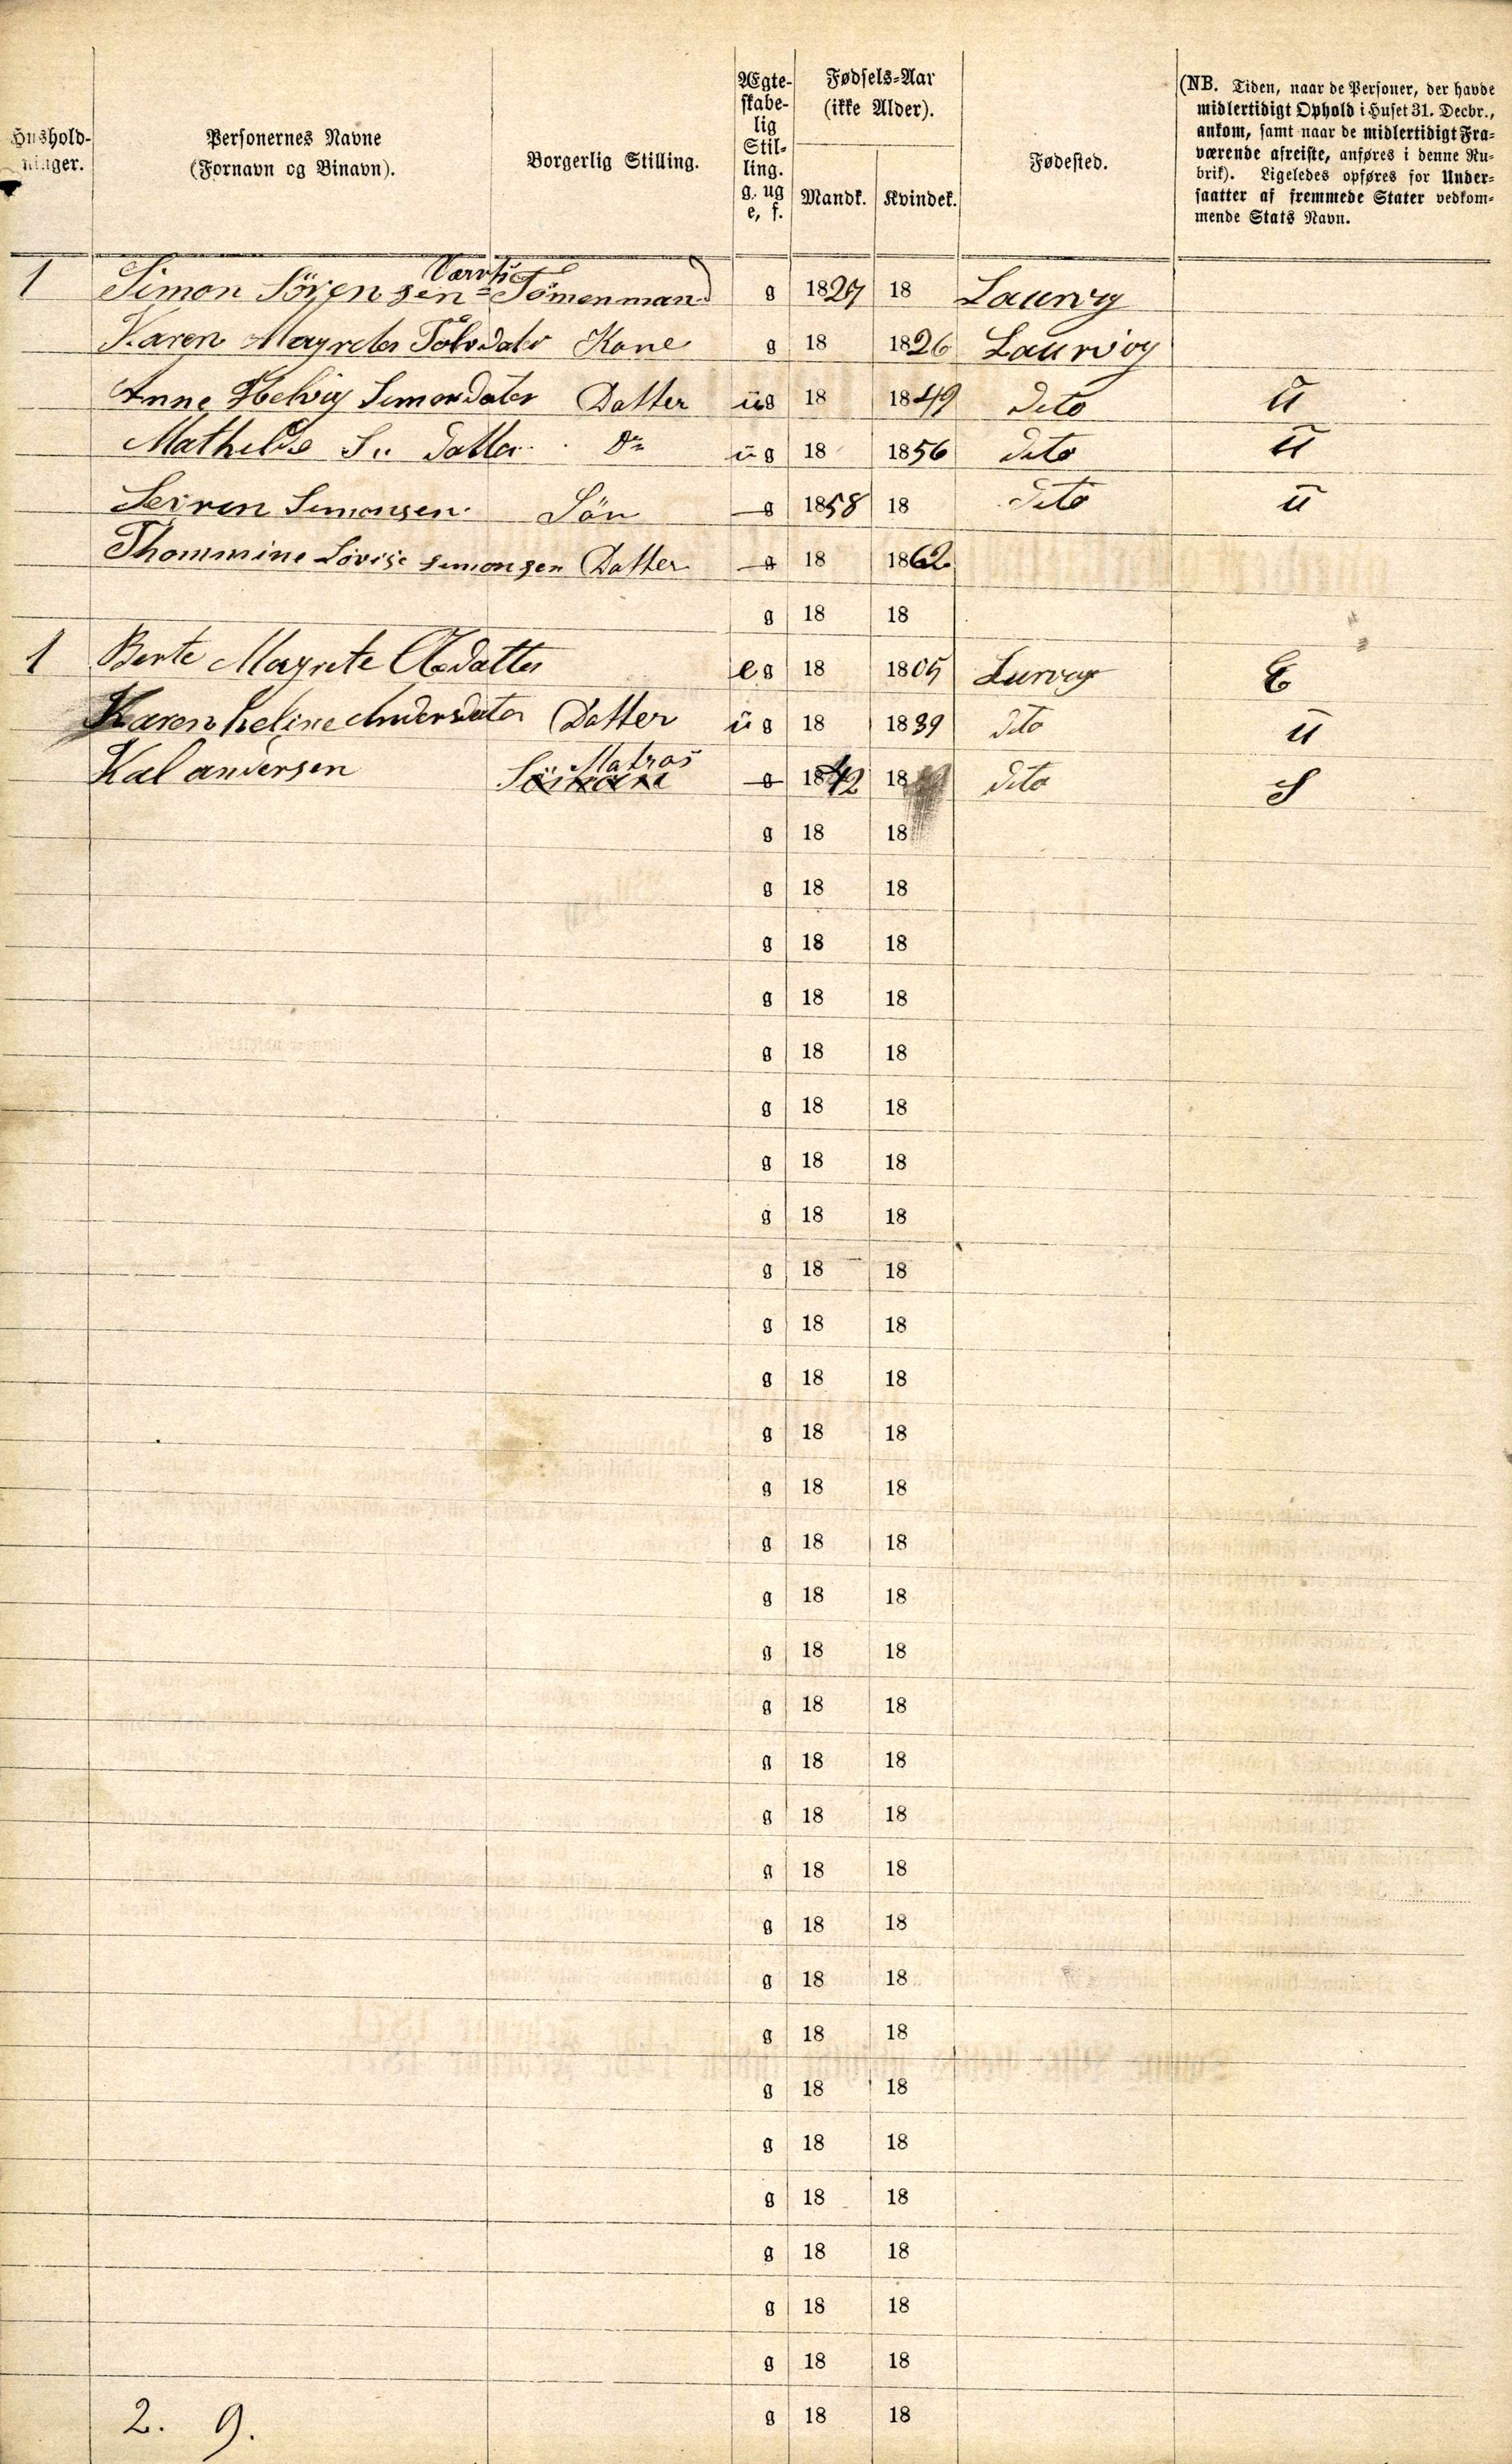 Hushold-
ninger.
Personernes Navne
(Fornavn og Binavn).
Borgerlig Stilling.
Ægte-
skabe-
lig
Stil-
ling.
g, ug
e, f.
Fødsels-Aar
(ikke Alder).
Mandk. Kvindek.
Fødested.
(NB. Tiden, naar de Personer, der havde
midlertidigt Ophold i Huset 31. Decbr.,
ankom, samt naar de midlertidigt Fra-
værende afreiste, anføres i denne Ru-
brik). Ligeledes opføres for Under-
saatter af fremmede Stater vedkom-
mende Stats Navn.
1 Simon Sörensen Tömenmand g 1827 18 Laurvig
Karen Magrete Kone g 18 1826 Laurvig
Anne Helvig Simondater Datter ug 18 1849 dito u
Mathilde S. datter do ug 18 1856 dito u
Simonsen Sön g 1858 18 dito u
Thommine Lovise Simonsen Datter g 18 1862
g 18 18
1 Berte Magrete eg 18 1805 Lurvig E
Karen heline Andersdater Datter ug 18 1839 dito u
Matros
Kal andersen Sömand g 1842 18 dito S
g 18 18
g 18 18
g 18 18
g 18 18
g 18 18
g 18 18
g 18 18
g 18 18
g 18 18
g 18 18
g 18 18
g 18 18
g 18 18
g 18 18
g 18 18
g 18 18
g 18 18
g 18 18
g 18 18
g 18 18
g 18 18
g 18 18
g 18 18
g 18 18
g 18 18
g 18 18
g 18 18
g 18 18
g 18 18
2. 9. g 18 18